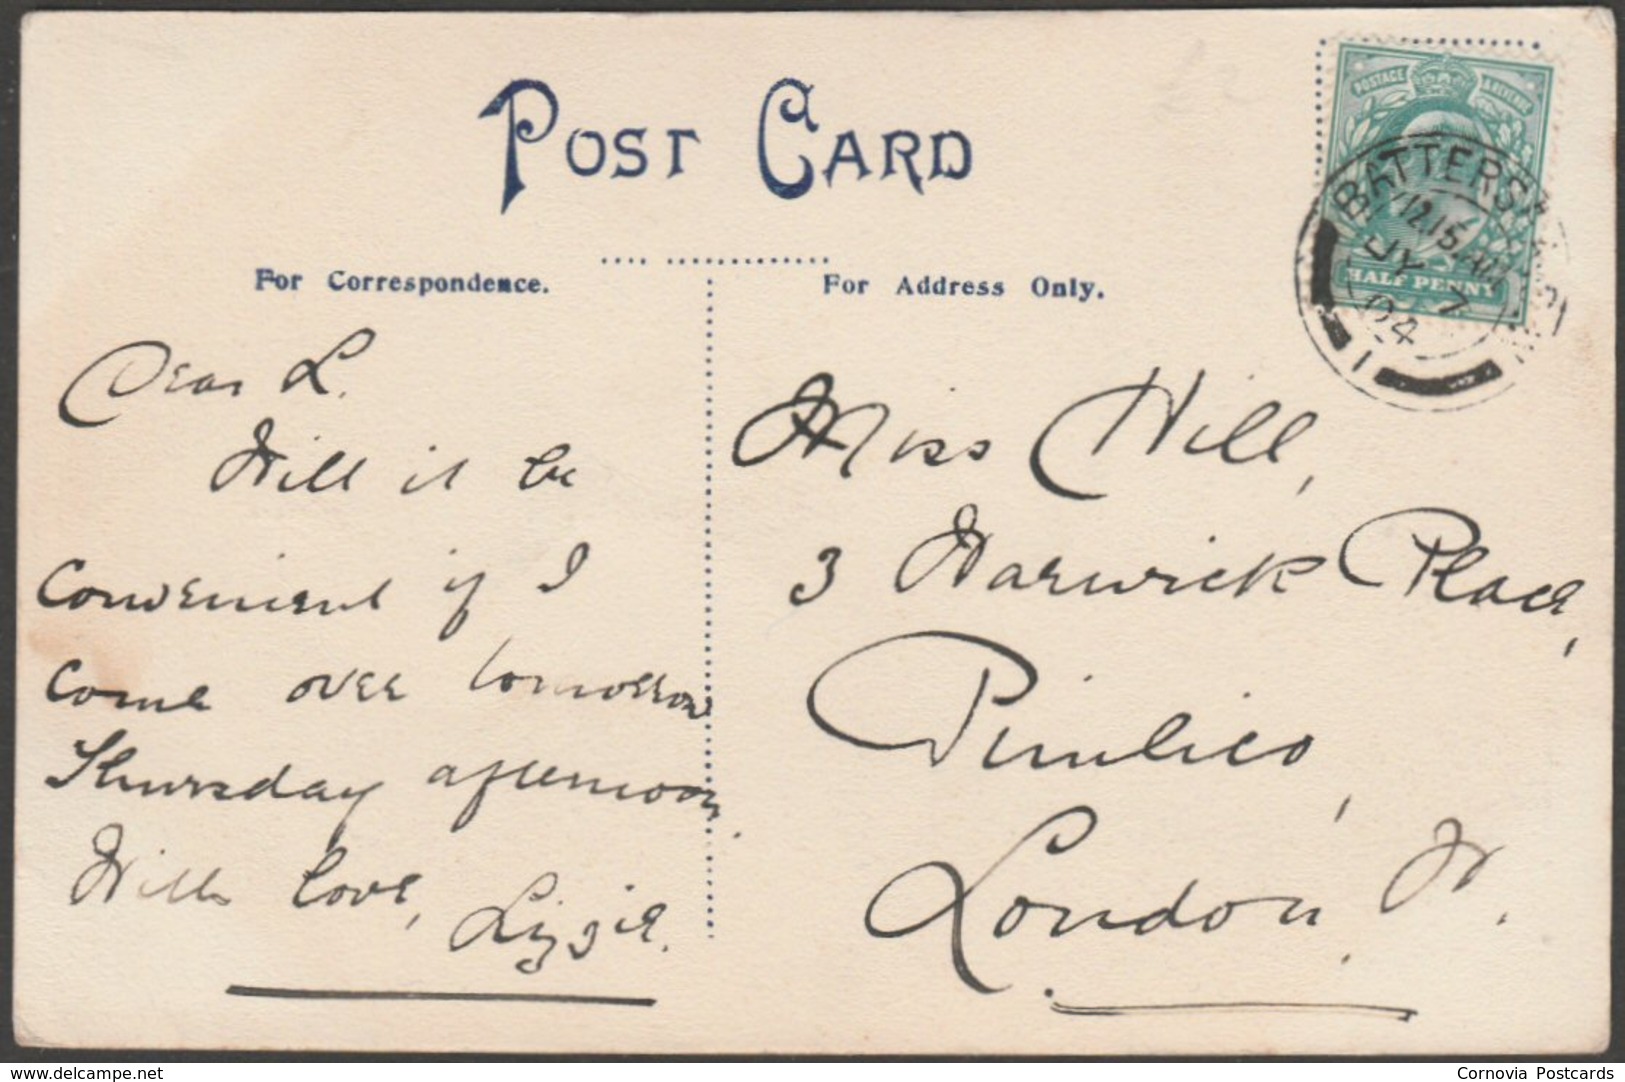 POST CARD
For Correspondence.
For Address Only.
POSTAGE & REVENUE
HALF PENNY
BATTERSEA
12.15 AM
JY 7
04
Dear L.
Will it be
convenient if I
come over tomorrow
Thursday afternoon.
With love,
Lizzie.
Miss Hill,
3 Warwick Place,
Pimlico,
London, W.
delcampe.net
Cornovia Postcards